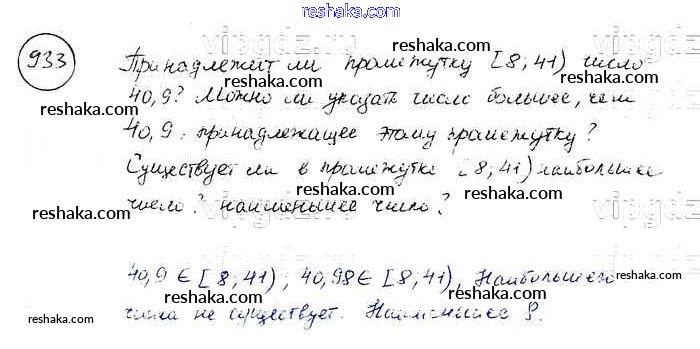 reshaka.com
933
Принадлежит ли промежутку [8;41) число
40,9? Можно ли указать число большее, чем
40,9, принадлежащее этому промежутку?
Существует ли в промежутке [8;41) наибольшее
число? наименьшее число?
40,9 ∈ [8;41); 40,98 ∈ [8;41), Наибольшего
числа не существует. Наименьшее 8.
reshaka.com
reshaka.com
reshaka.com
reshaka.com
reshaka.com
reshaka.com
reshaka.com
reshaka.com
reshaka.com
reshaka.com
reshaka.com
reshaka.com
reshaka.com
reshaka.com
vipgdz
vipgdz
vipgdz